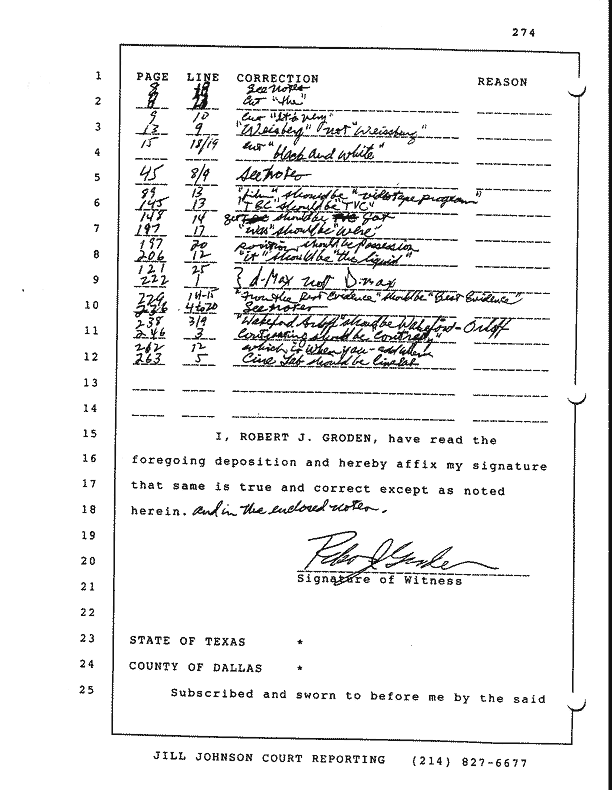 274
1 PAGE LINE CORRECTION REASON
8 See notes
2 Cut "the"
9 10 Cut "It's very"
3 13 9 "Weisberg" not "Weissburg"
4 15 18/19 cut "black and white"
5 45 8/9 See notes
89 13 "film" should be "videotape program"
6 145 13 "TBC" should be "TVC"
148 14 should be got
7 197 17 "was" should be "were"
197 20 position should be possession
8 206 12 "it" should be "the liquid"
121 25
9 222 1 } d-Max not D-max
10 226 4 to 20 See notes
238 3/9 "Wakeford Orloff" should be Wakeford-Orloff
11 246 3 should be "Contrasty"
262 12 which is when you - add when
12 263 5 Cine Lab should be Cinelab
13
14
15 I, ROBERT J. GRODEN, have read the
16 foregoing deposition and hereby affix my signature
17 that same is true and correct except as noted
18 herein. and in the enclosed notes.
19
20
Signature of Witness
21
22
23 STATE OF TEXAS *
24 COUNTY OF DALLAS *
25 Subscribed and sworn to before me by the said
JILL JOHNSON COURT REPORTING (214) 827-6677